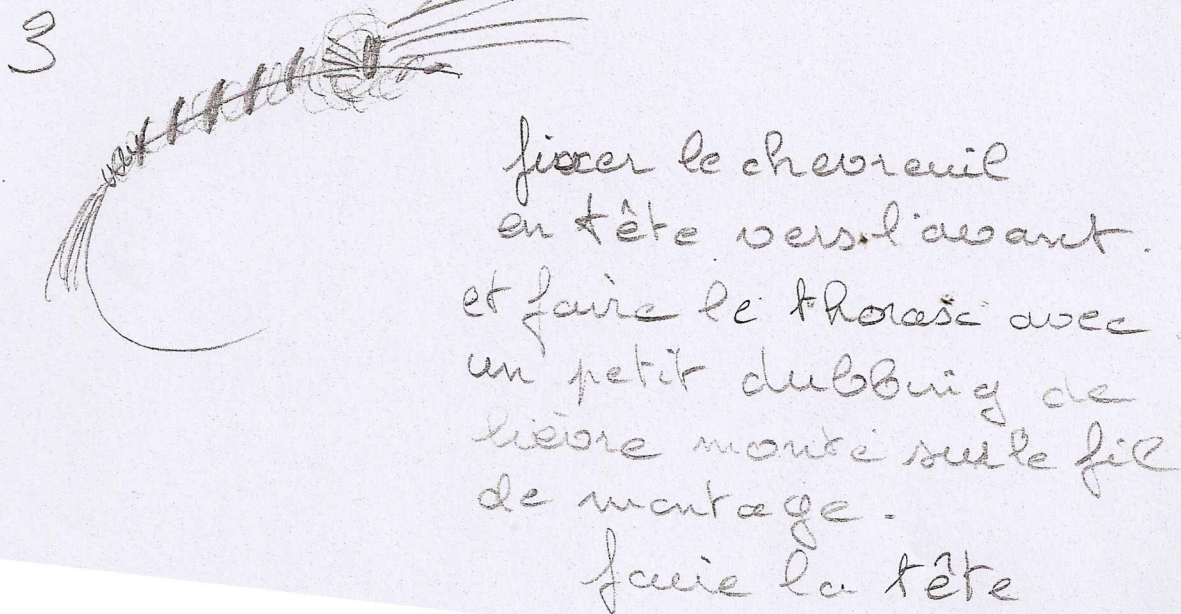 3
fixer le chevreuil
en tête vers l'avant.
et faire le thorax avec
un petit dubbing de
lièvre monté sur le fil
de montage.
faire la tête